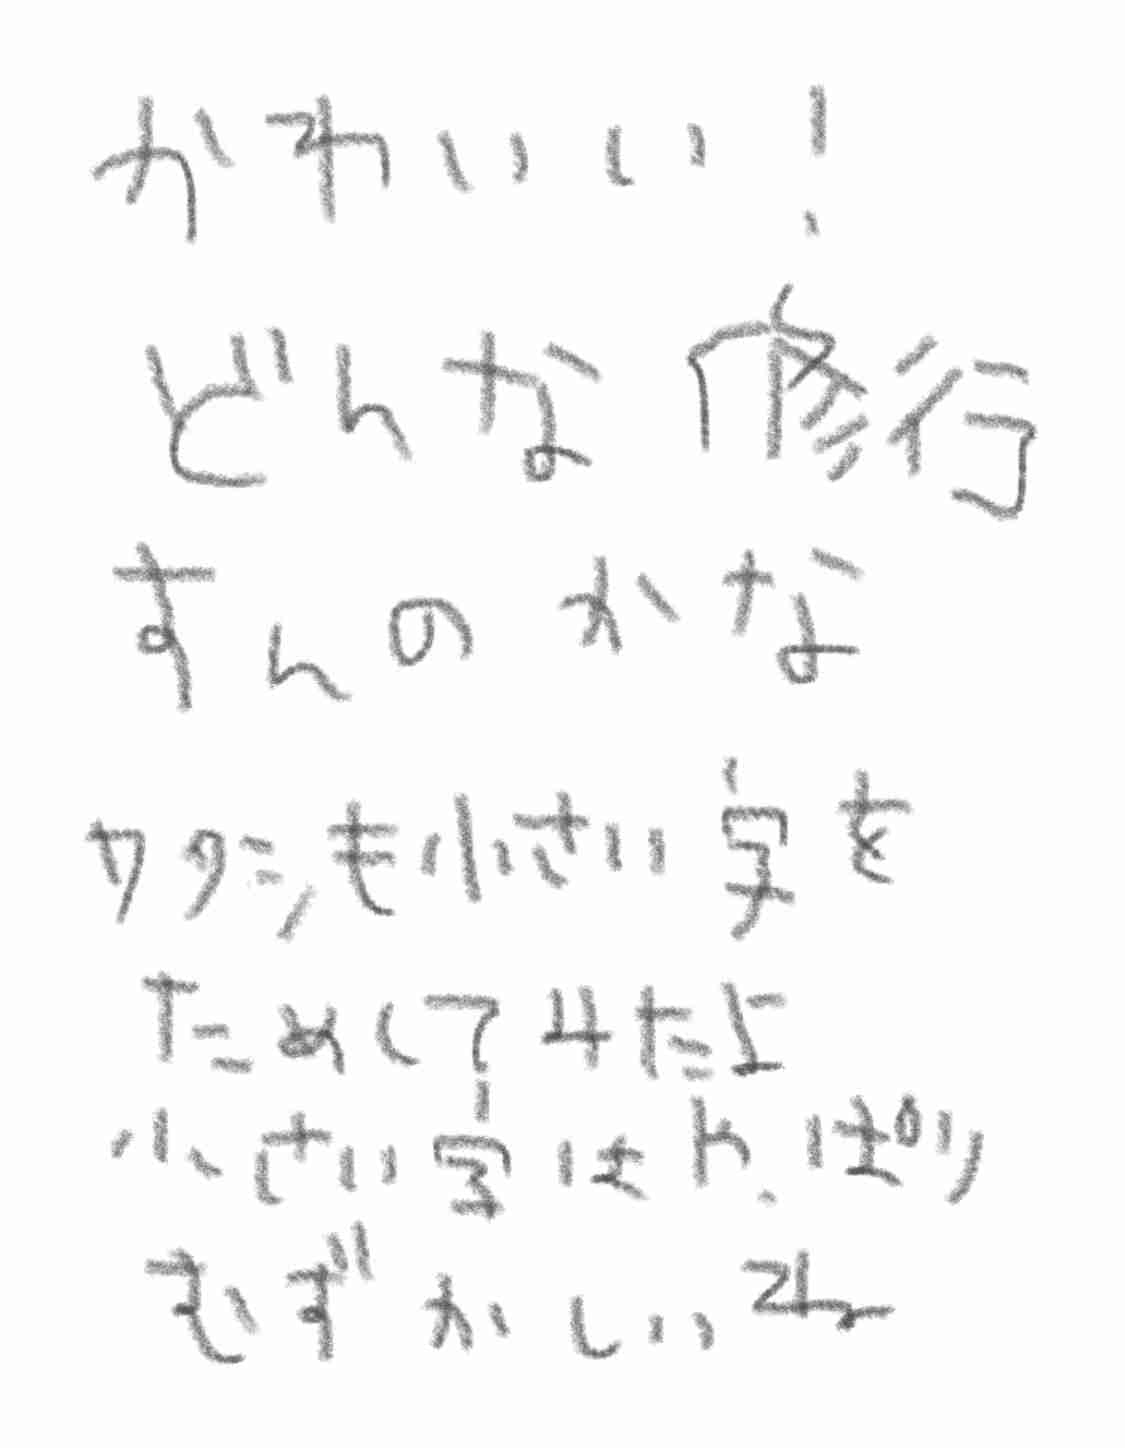 かわいい!
どんな修行
すんのかな
ワタシも小さい字を
ためしてみたよ
小さい字はやっぱり
むずかしいね